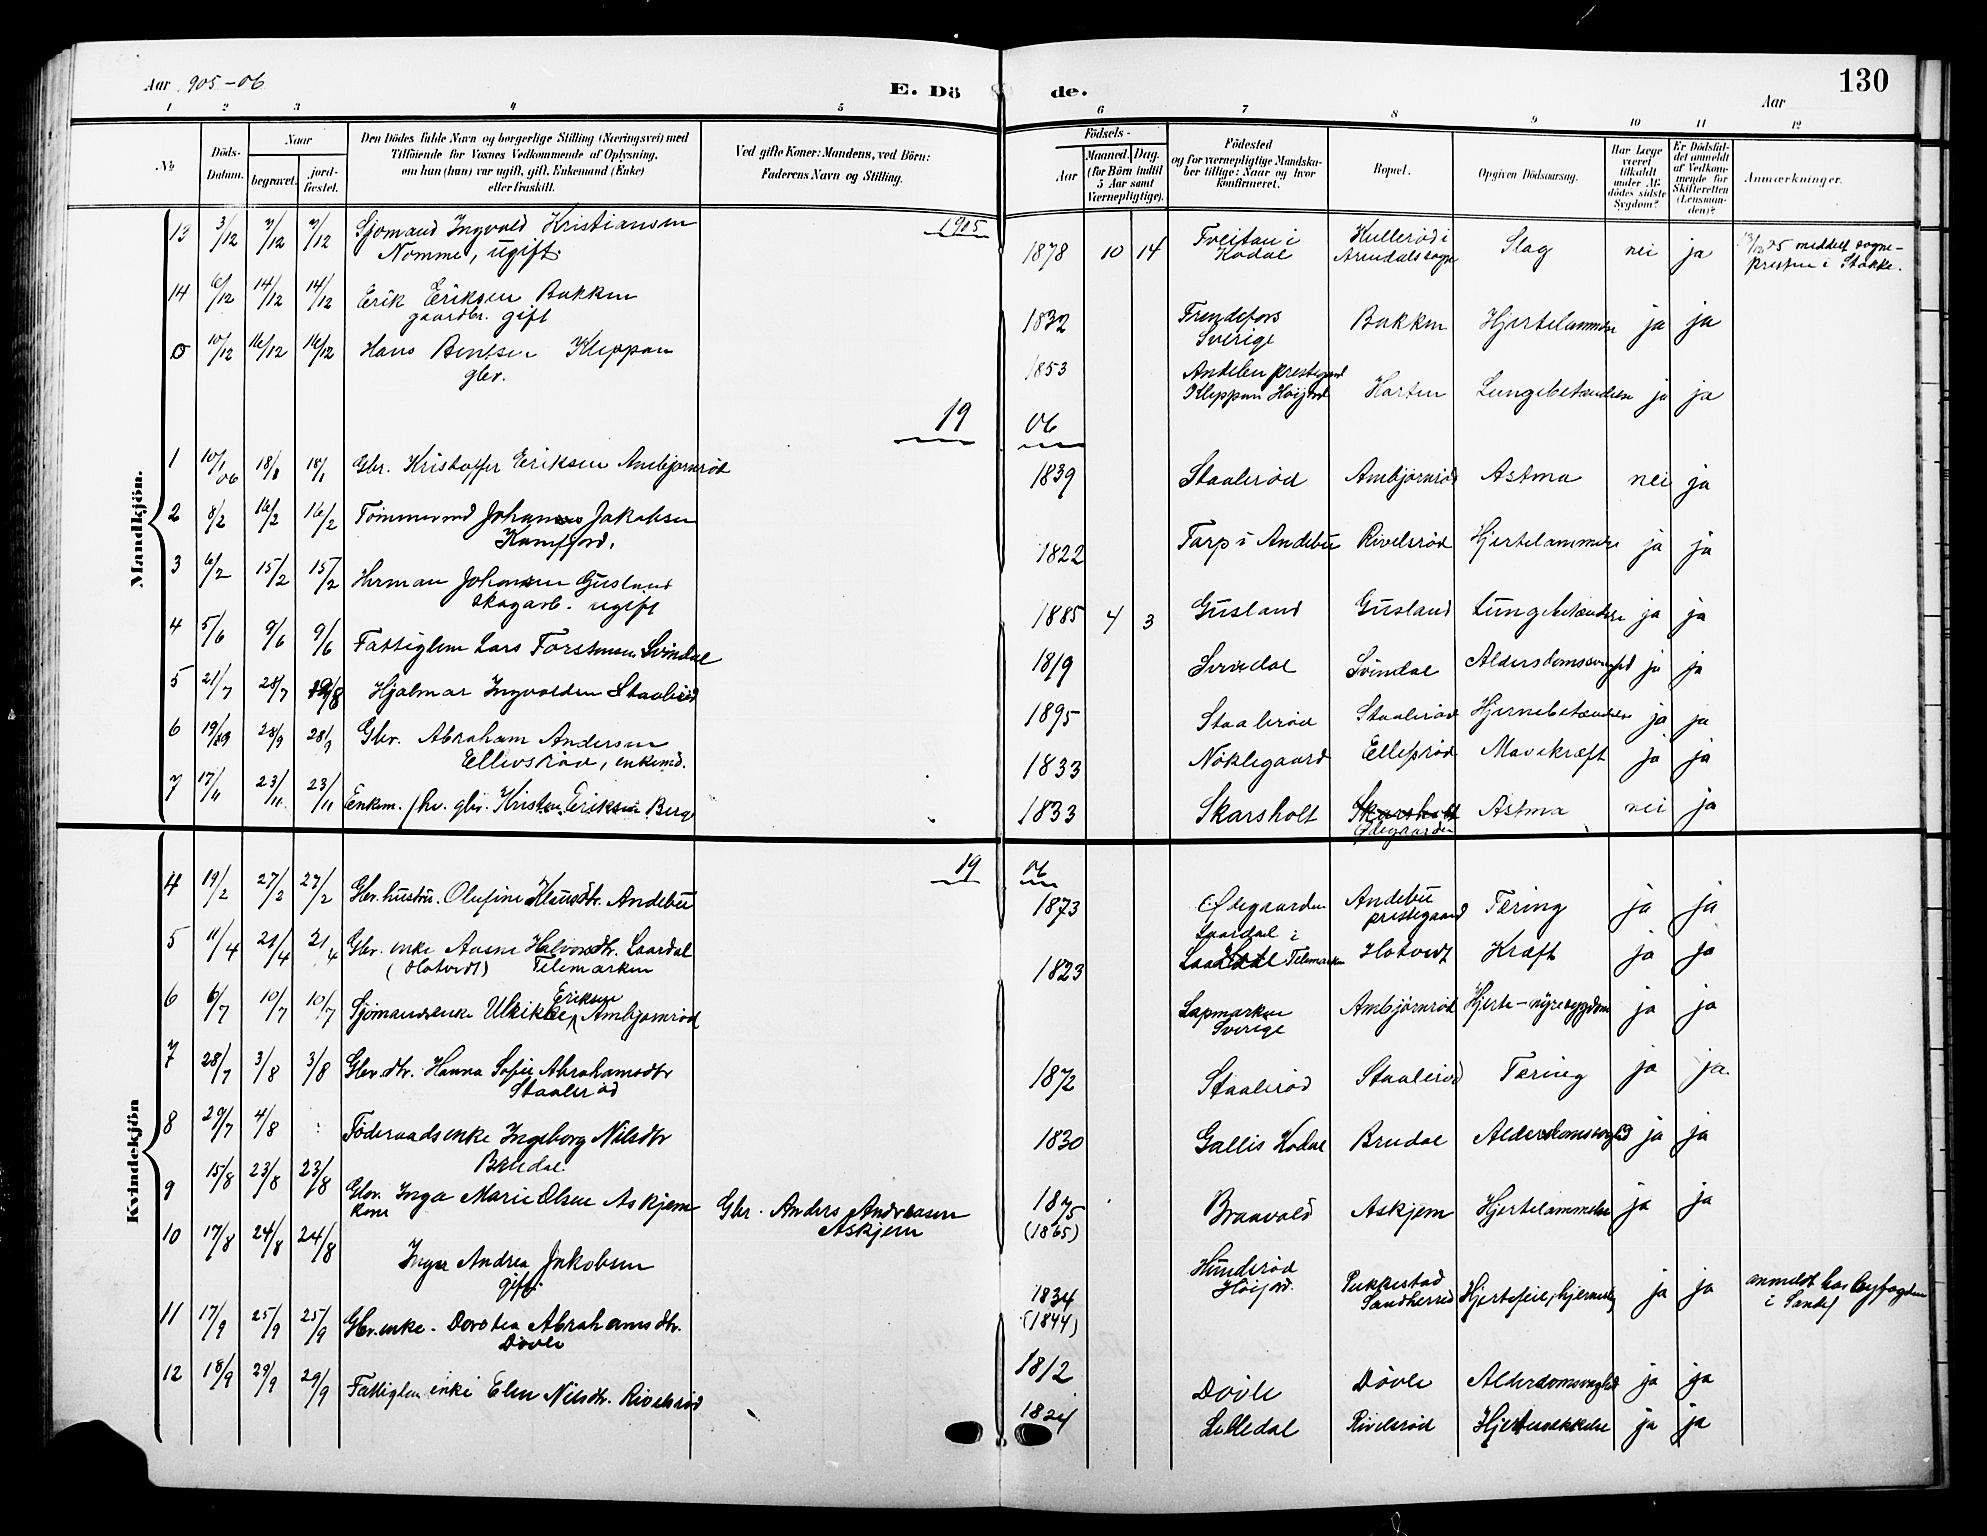 Aar 905-06
E. Döde.
Aar
130
1 2 3 4 5 6 7 8 9 10 11 12
No
Döds-Datum.
Naar
begravet.
jordfæstet.
Den Dödes fulde Navn og borgerlige Stilling (Næringsvei) med
Tilföiende for Voxnes Vedkommende af Oplysning,
om han (hun) var ugift, gift, Enkemand (Enke)
eller fraskilt.
Ved gifte Koner: Mandens, ved Börn:
Faderens Navn og Stilling.
Födsels-
Aar
Maaned. Dag.
(for Börn indtil
5 Aar samt
Værnepligtige).
Födested
og for værnepligtige Mandskaber tillige: Naar og hvor
konfirmeret.
Bopæl.
Opgiven Dödsaarsag.
Har Læge
været
tilkaldt
under Afdödes sidste
Sygdom?
Er Dödsfaldet anmeldt
af Vedkommende for
Skifteretten
(Lensmanden)?
Anmærkninger.
Mandkjön.
1905
13 3/12 7/12 7/12 Sjömand Ingvald Kristiansen
Nomme, ugift. 1878 10 14 Freitau i
Kodal Hullerød i
Arendals sogn Slag nei ja 05 meddelt sogne-
presten i Stokke.
14 6/12 14/12 14/12 Erik Eriksen Bakken
gaardbr. gift 1832 Frendefors
Sverige Bakken Hjertelammelse ja ja
10/12 16/12 16/12 Hans Bentsen Kleppan
gbr. 1853 Andebu prestegaard
Kleppan Høijord Horten Lungebetændelse ja ja
19 06
1 10/1 06 18/1 18/1 Gbr. Kristoffer Eriksen Ambjørnrød 1839 Staalerød Ambjørnrød Astma nei ja
2 8/2 16/2 16/2 Tømmermd Johannes Jakobsen
Kamfjord. 1822 Tarp i Andebu Rivelsrød Hjertelammelse ja ja
3 6/2 15/2 15/2 Herman Johansen Gusland
skogarb. ugift 1885 4 3 Gusland Gusland Lungebetændelse ja ja
4 5/6 9/6 9/6 Fattiglem Lars Torstensen Svindal 1819 Svindal Svindal Alderdomssvaghed ja ja
5 21/7 28/7 19/8 Hjalmar Ingvaldsen Staalerød 1895 Staalerød Staalerød Hjernebetændelse ja ja
6 19/9 28/9 28/9 Gbr. Abraham Andersen
Ellevsrød, enkemd. 1833 Nøklegaard Ellefsrød Mavekræft ja ja
7 17/11 23/11 23/11 Enkem. fhv. gbr. Kristen Eriksen Berg 1833 Skarsholt Skarsholt
Ølegaarden Astma nei ja
Kvindekjön
19 06
4 19/2 27/2 27/2 Gbr. hustru. Olufine Klausdtr. Andebu 1873 Ølegaarden Andebu
prestegaard Tæring ja ja
5 11/4 21/4 21/4 Gbr. enke Aasne Halvorsdtr. Laardal
(Hotvedt) Telemarken 1823 Laardal i
Telemarken Hotvedt Kræft ja ja
6 6/7 10/7 10/7 Sjømandsenke Ulrikke Eriksen Ambjørnrød Lapmarken
Sverige Ambjørnrød Hjerte-nyresygdom ja ja
7 28/7 3/8 3/8 Gbr. dtr. Hanna Sofie Abrahamsdtr
Staalerød 1872 Staalerød Staalerød Tæring ja ja.
8 29/7 4/8 Föderaadsenke Ingeborg Nilsdtr
Brudal 1830 Gallis Kodal Brudal Alderdomssvaghed ja ja
9 15/8 23/8 23/8 Gbr. kone Inga Marie Olsen Askjem Gbr. Anders Andreasen
Askjem 1875
(1865) Braavold Askjem Hjertelammelse ja ja
10 17/8 24/8 24/8 Inger Andrea Jakobsen
gift. 1834
(1844) Hunderød
Høijord. Pukkestad
Sandherred Hjertefeil, ja ja anmeldt hos byfogden
i Sandef
11 17/9 25/9 25/9 Gbr. enke. Dorotea Abrahamsdtr.
Døvle 1812 Døvle Døvle Alderdomssvaghed ja ja
12 18/9 29/9 29/9 Fattiglem enke Elen Nilsdtr. Rivelsrød 1824 Lilledal Rivelsrød Hjerteonde ja ja